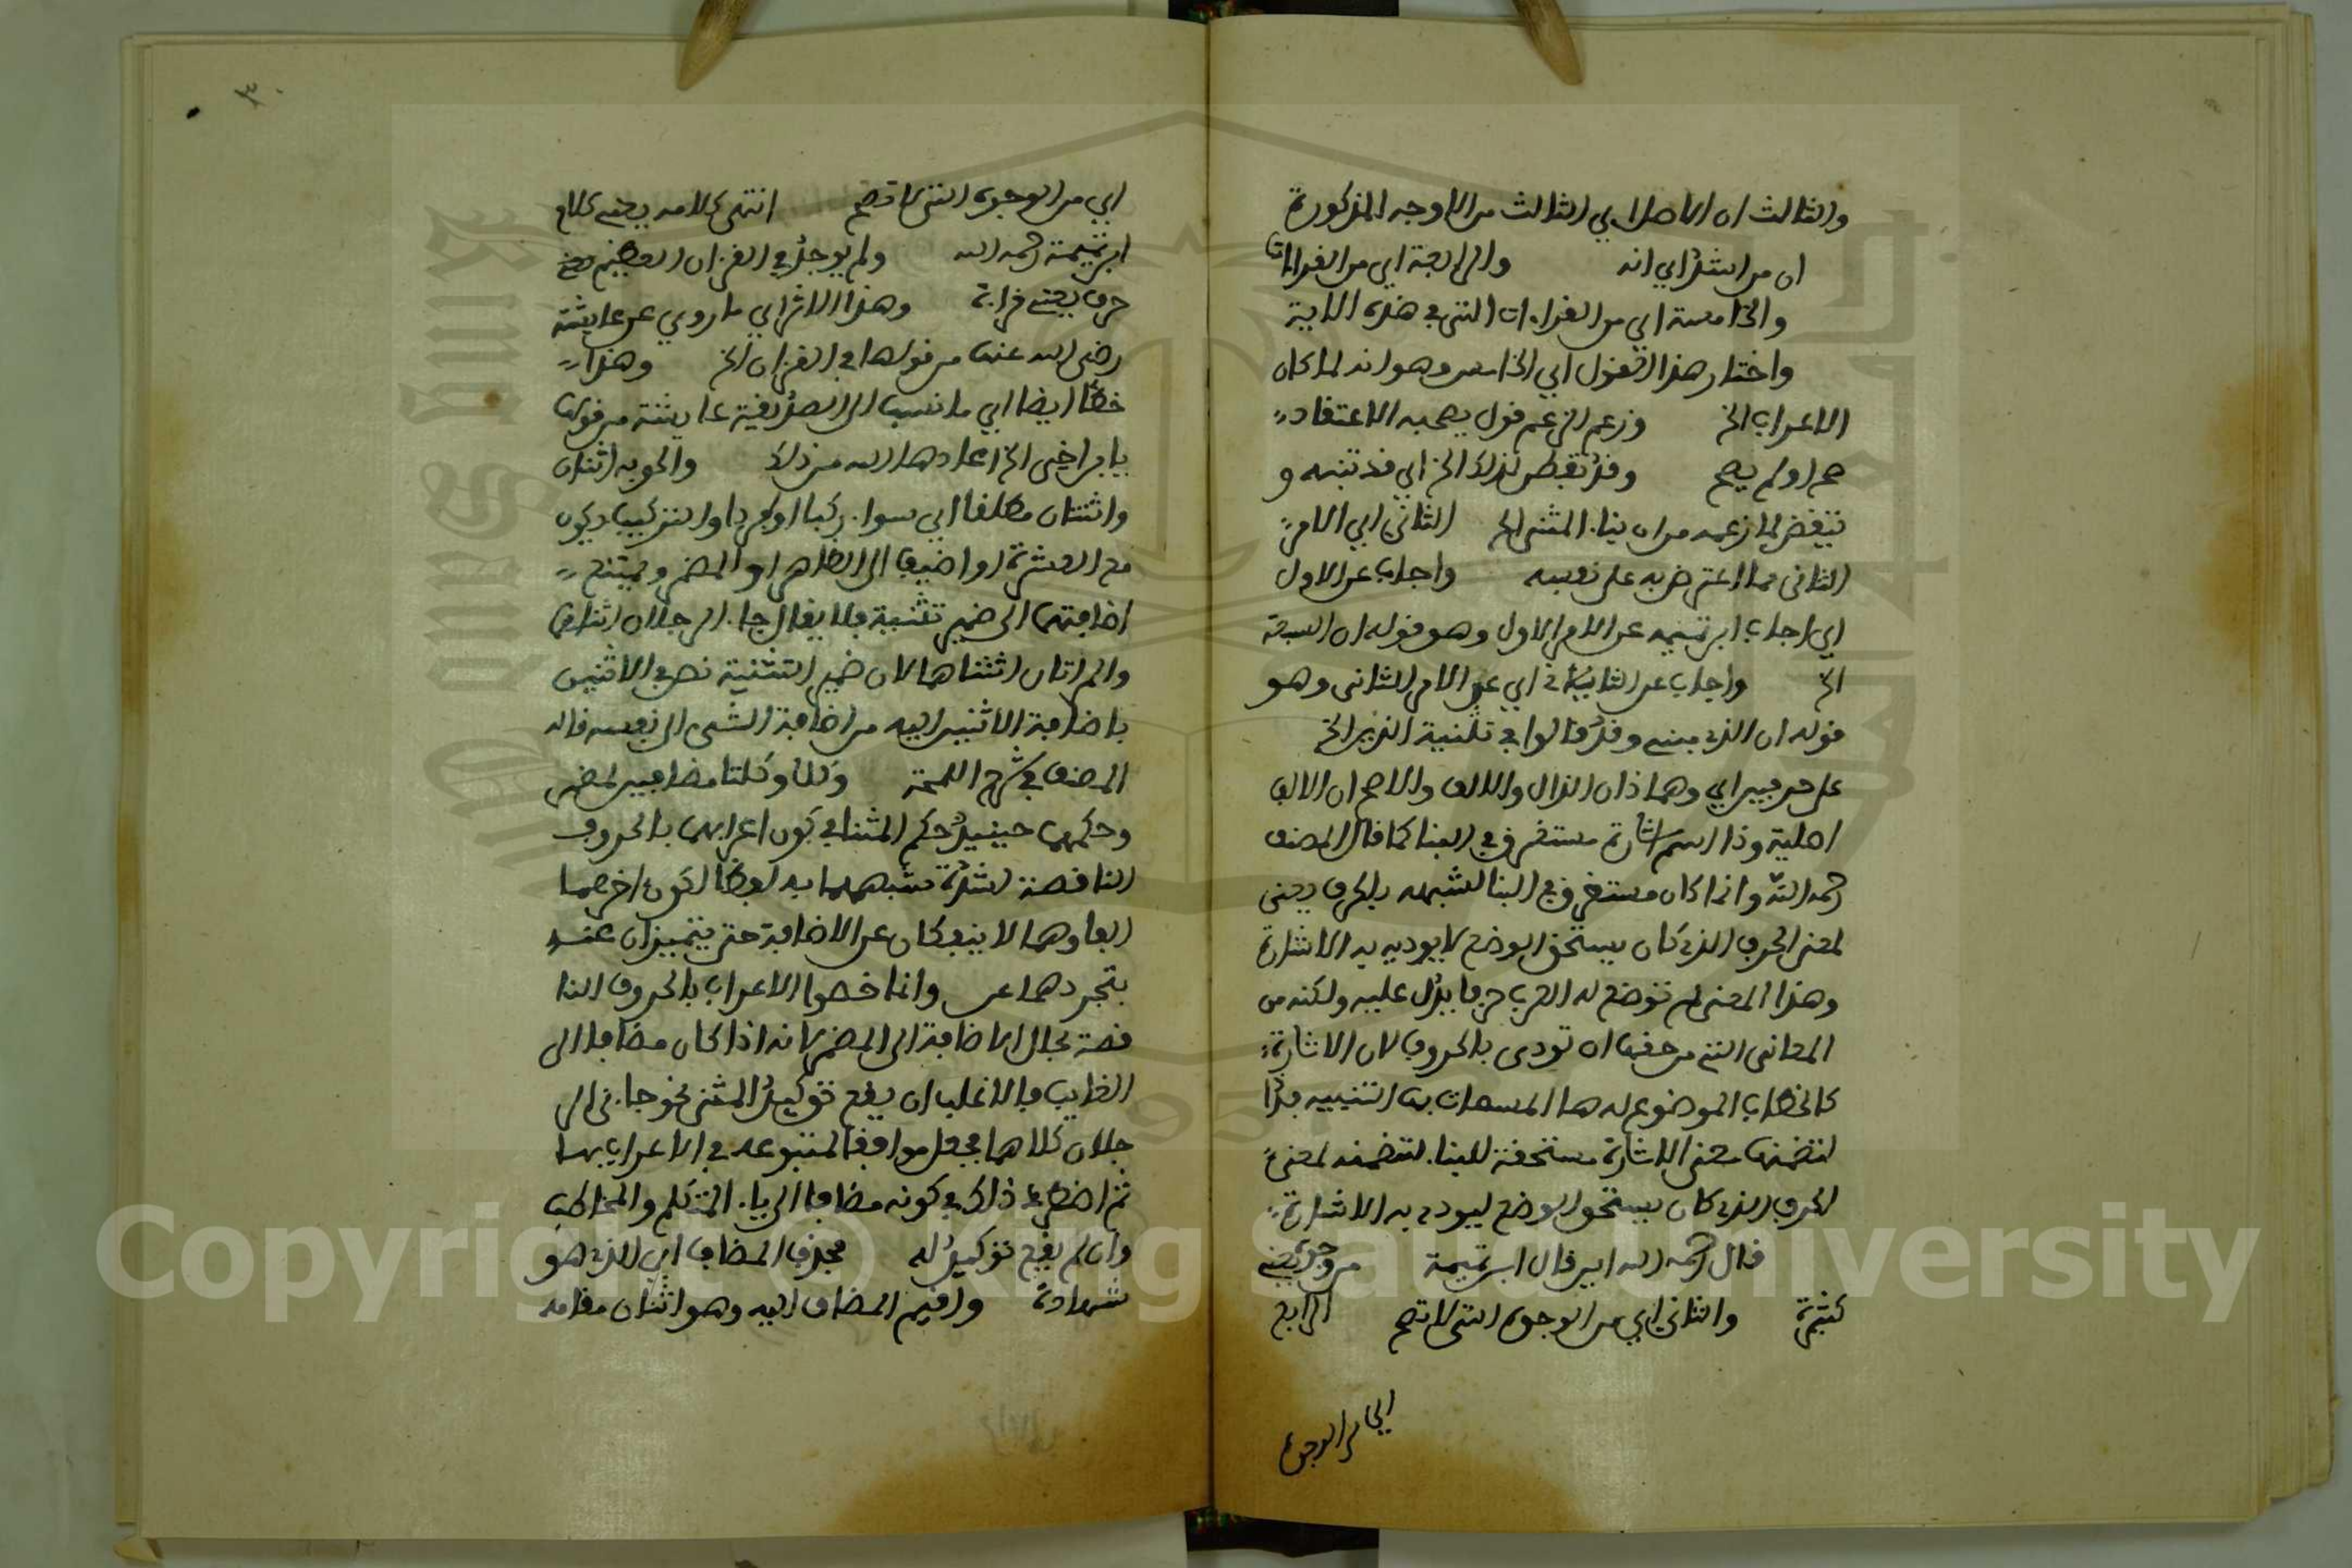 والثالث ان الاصل اي الثالث من الاوجه المذكورة
ان من انشد اي انه والرابعة اي من القراات
والخامسة اي من القراءات التي في هذه الاية
واختار هذا القول اي الخامس وهو انه لما كان
الاعراب الخ وزعم الزعم قول يصحبه الاعتقاد
صح او لم يصح وقد تفطن لذلك الخ اي قد تنبه و
تيقض لما زعمه من ان بناء المثنى الخ الثاني اي الامر
الثاني مما اعترض به على نفسه واجاب عن الاول
اي اجاب ابن تيميه عن الامر الاول وهو قوله ان السبعة
الخ واجاب عن الثاني اي عن الامر الثاني وهو
قوله ان الذي مبني وقد قالوا في تثنية الذين الخ
على حرفين اي وهما ذان الذال والالف والاصح ان الالف
اصلية وذا اسم اشارة مستغرق في البنا كما قال المصنف
رحمه الله وانما كان مستغرق في البنا لشبهه بالحرف يعني
لمعنى الحرف الذي كان يستحق الوضع لا يوديه به الاشارة
وهذا المعنى لم توضع له العرب حرفا يدل عليه ولكنه من
المعاني التي من حقها ان تودى بالحروف لان الاشارة
كالخطاب الموضوع له ها المسمات بها التنبيه فذا
لتضمنها معنى الاشارة مستحقة للبنا. لتضمنه لمعنى
الحرف الذي كان يستحق الوضع ليودي به الاشارة
قال رحمه الله اي قال ابن تيمية من وجوه يعني
كثيرة والثاني اي من الوجوه التي لا تصح الرابع
اي من الوجوه
٣٠
اي من الوجوه التي لا تصح انتهى كلامه يعني كلام
ابن تيمية رحمه الله ولم يوجد في القرءان العظيم
حرف يعني قراءة وهذا الاثر اي ما روي عن عايشة
رضي الله عنها من قولها في القرءان الخ وهذا
خطا ايضا اي ما نسب الى الصديقية عايشة من قولها
يابن اخي الخ اعادها الله من ذلك والحق به اثنان
واثنتان مطلقا اي سواء ركبا او افردا والتركيب يكون
مع العشرة او اضيف الى الظاهر او المضمر ويمتنع
اضافتهما الى ضمير تثنية فلا يقال جاء الرجلان اثناهما
والمراتان اثنتاهما لان ضمير التثنية نص في الاثنين
باضافة الاثنين اليه من اضافة الشى الى نفسه قاله
المصنف في شرح اللمحة وكلا وكلتا مضافيين لمضمر
وحكمهما حينيذ حكم المثنا في كون اعرابهما بالحروف
الناقصة لشدة شبههما به لفظا لكون اخرهما
الفا وهما لا ينفكان عن الاضافة حتى يتميزان عنه
بتجردهما عن وانما خصوا الاعراب بالحروف النا
قصة بحال الاضافة الى المضمر لانه اذا كان مضافا الى
الغايب فالاغلب ان يقع توكيد المثنى نحو جاءني الر
جلان كلاهما فجعل موافقا لمتبوعه في الاعراب بهما
ثم اضطرد ذلك في كونه مضافا الى ياء المتكلم والمخاطب
وان لم يقع توكيد له فحذف المضاف اي الذي هو
شهادة واقيم المضاف اليه وهو اثنان مقامه
Copyright © King Saud University
King Saud University
1957